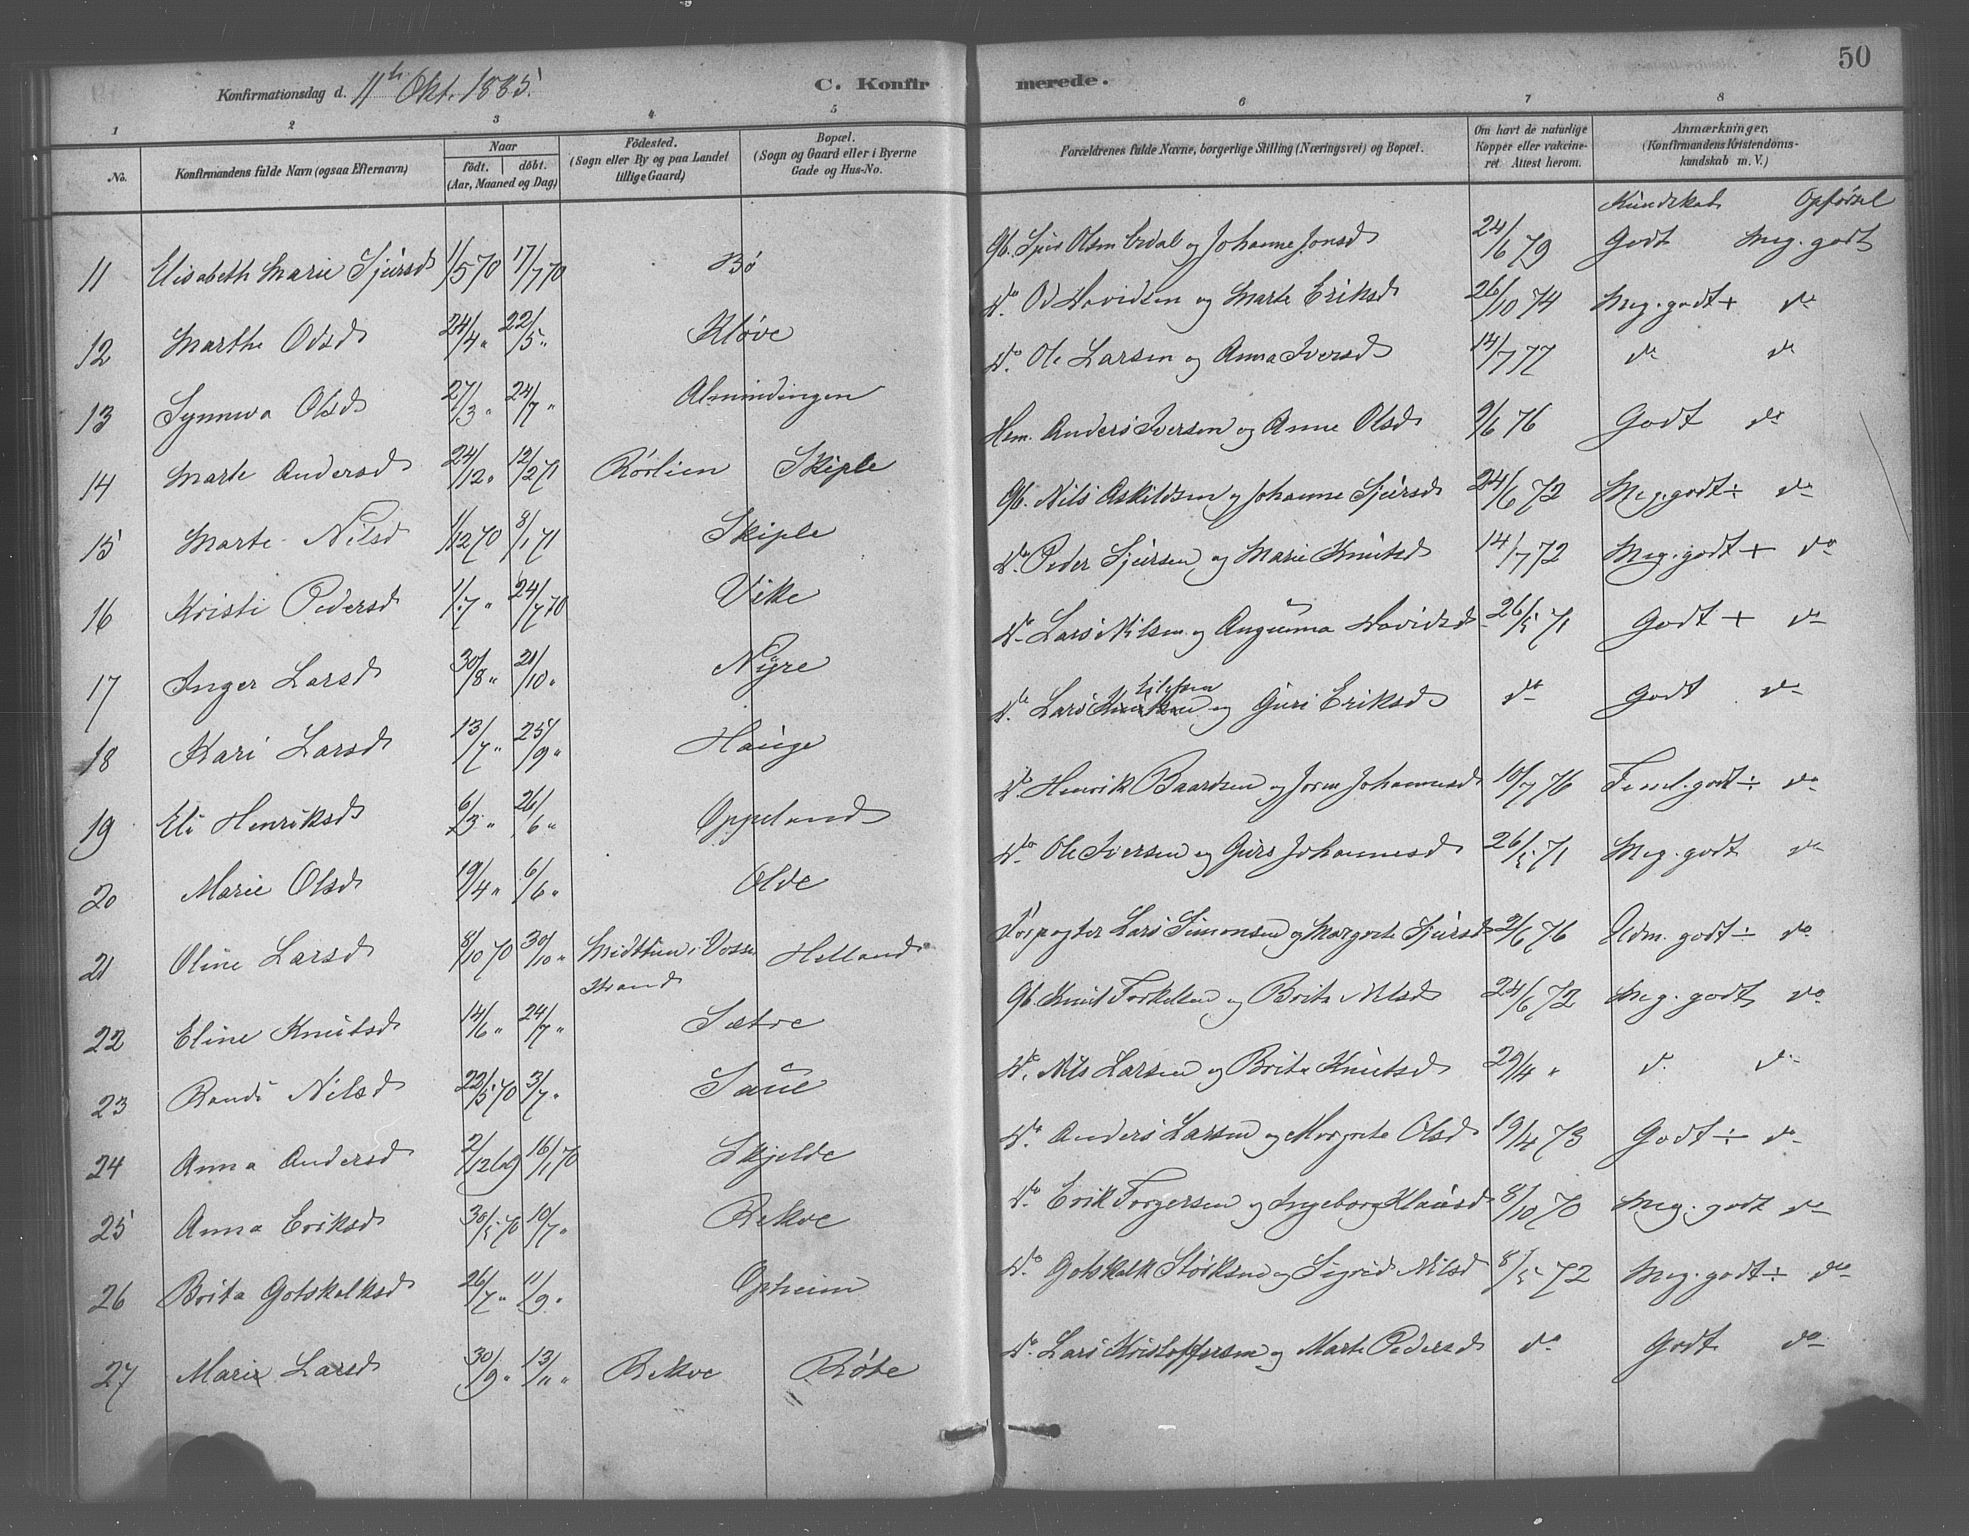 50
Konfirmationsdag d. 11te Okt. 1885.
C. Konfirmerede.
1 2 3 4 5 6 7 8
No. Konfirmandens fulde Navn (ogsaa Efternavn) Naar født. døbt. (Aar, Maaned og Dag) Fødested. (Sogn eller By og paa Landet tillige Gaard) Bopæl. (Sogn og Gaard eller i Byerne Gade og Hus-No. Forældrenes fulde Navne, borgerlige Stilling (Næringsvei) og Bopæl. Om havt de naturlige Kopper eller vakcineret Attest herom. Anmærkninger. (Konfirmandens Kristendomskundskab m. V.)
Kundskab Opførsel
11 Elisabeth Marie Sjursd 1/5 70 17/7 70 Bø Gb. Sjur Olsen og Johanne Jonsd 24/6 79 Godt Meg. godt
12 Marthe Odsd 24/4 " 22/5 " Kløve Do Od Davidsen og Marte Eriksd 26/10 74 Meg. godt + do
13 Synneva Olsd 27/3 " 24/7 " Almindingen Do Ole Larsen og Anna Iversd 14/7 77 do do
14 Marte Andersd 24/12 " 12/2 71 Rørlien Skiple Hsm. Anders Iversen og Anne Olsd 9/6 76 Godt do
15 Marte Nilsd 1/12 70 8/1 71 Skiple Gb. Nils Askildsen og Johanne Sjursd 24/6 72 Meg. godt ÷ do
16 Kristi Pedersd 1/7 " 24/7 70 Vike Do Peder Sjursen og Marie Knutsd 14/7 72 Meg. godt + do
17 Inger Larsd 30/8 " 21/10 " Nyre Do Lars Nilsen og Angunna Davidsd 26/5 71 Godt + do
18 Kari Larsd 13/7 " 25/9 " Hauge Do Lars Eilifsen og Guri Eriksd do Godt do
19 Eli Henriksd 6/3 " 26/6 " Oppeland Do Henrik Baardsen og Joren Johannesd 10/7 76 Teml. godt ÷ do
20 Marie Olsd 19/4 " 6/6 " Olde Do Ole Iversen og Guro Johannesd 26/5 71 Meg. godt do
21 Oline Larsd 8/10 70 30/10 " Midttun i Vossestrand Helland Forpagter Lars Simonsen og Margrete Sjursd 2/6 76 Udm. godt ÷ do
22 Eline Knutsd 14/6 " 24/7 " Sætre Gb. Knut Torkelsen og Brita Nilsd 24/6 72 Meg. godt do
23 Randi Nilsd 22/5 70 3/7 " Saue Do Nils Larsen og Brita Knutsd 29/4 " do do
24 Anna Andersd 2/12 69 16/1 70 Skjelde Do Anders Larsen og Margrete Olsd 19/4 73 Godt ÷ do
25 Anna Eriksd 30/5 70 10/7 " Rekve Do Erik Torgersen og Ingeborg Klausd 8/10 70 Meg. godt do
26 Brita Gotskalksd 26/7 " 11/9 " Opheim Do Gotskalk Størksen og Sigrid Nilsd 8/5 72 Meg. godt ÷ do
27 Marie Larsd 30/9 " 13/11 " Rekve Røte Do Lars Kristoffersen og Marte Pedersd do Godt do